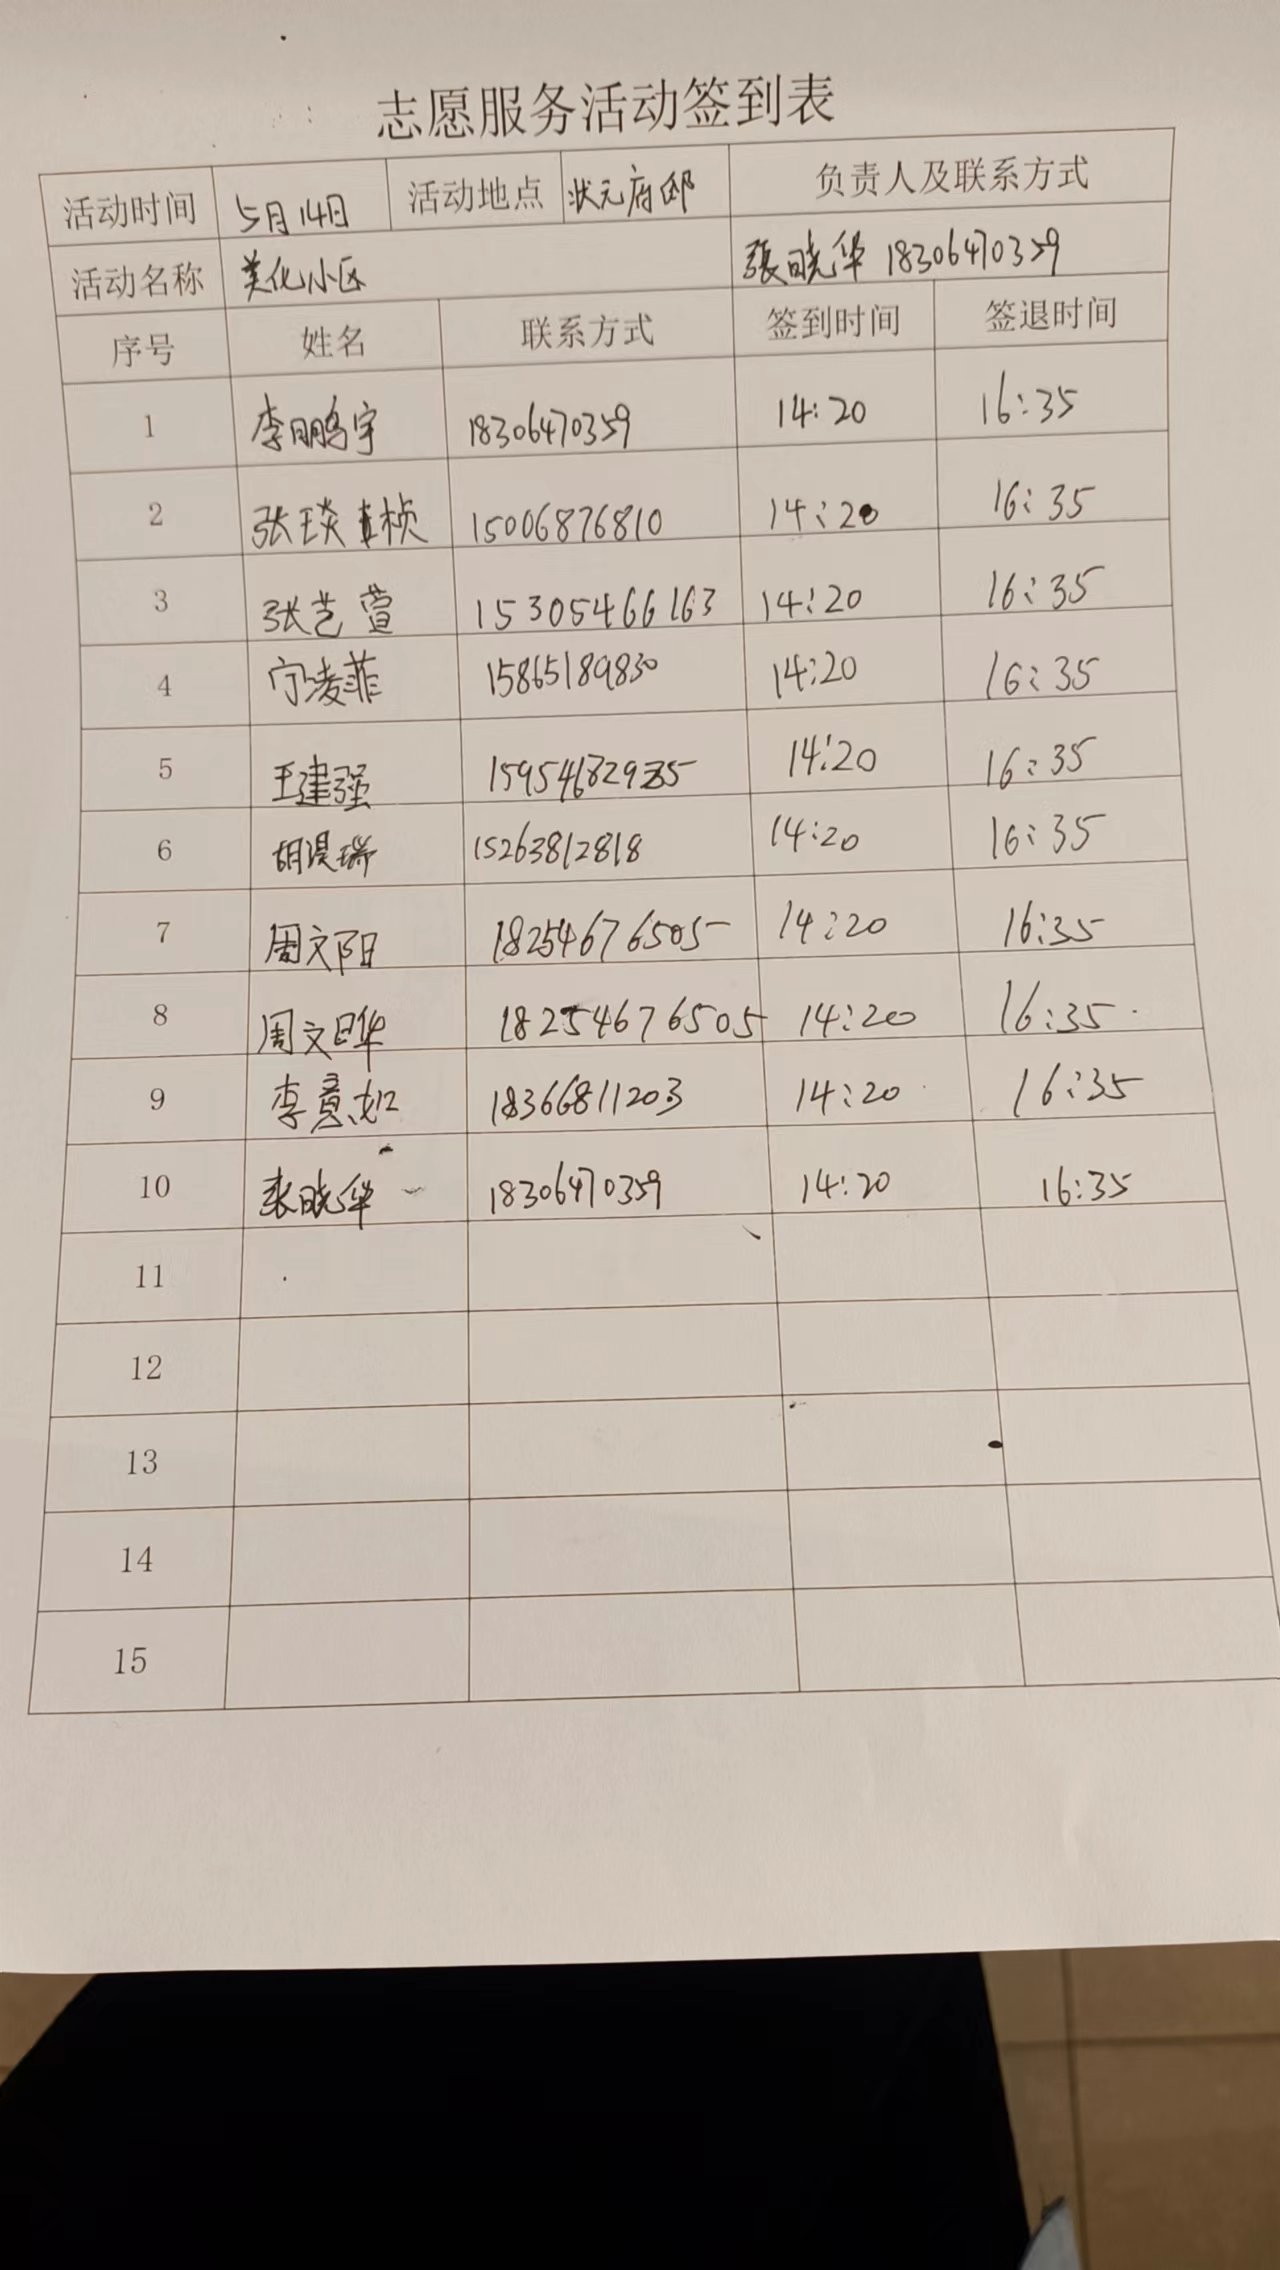 志愿服务活动签到表
活动时间 5月14日 活动地点 状元府邸 负责人及联系方式
活动名称 美化小区 張晓华 18306470359
序号 姓名 联系方式 签到时间 签退时间
1 李鹏宇 18306470359 14:20 16:35
2 张琰桢 15006876810 14:20 16:35
3 张艺萱 15305466163 14:20 16:35
4 宁凌菲 15865189830 14:20 16:35
5 王建强 14:20 16:35
6 15263812818 14:20 16:35
7 周文阳 18254676505 14:20 16:35
8 周文晔 18254676505 14:20 16:35
9 李意如 18366811203 14:20 16:35
10 张晓华 18306470359 14:20 16:35
11
12
13
14
15